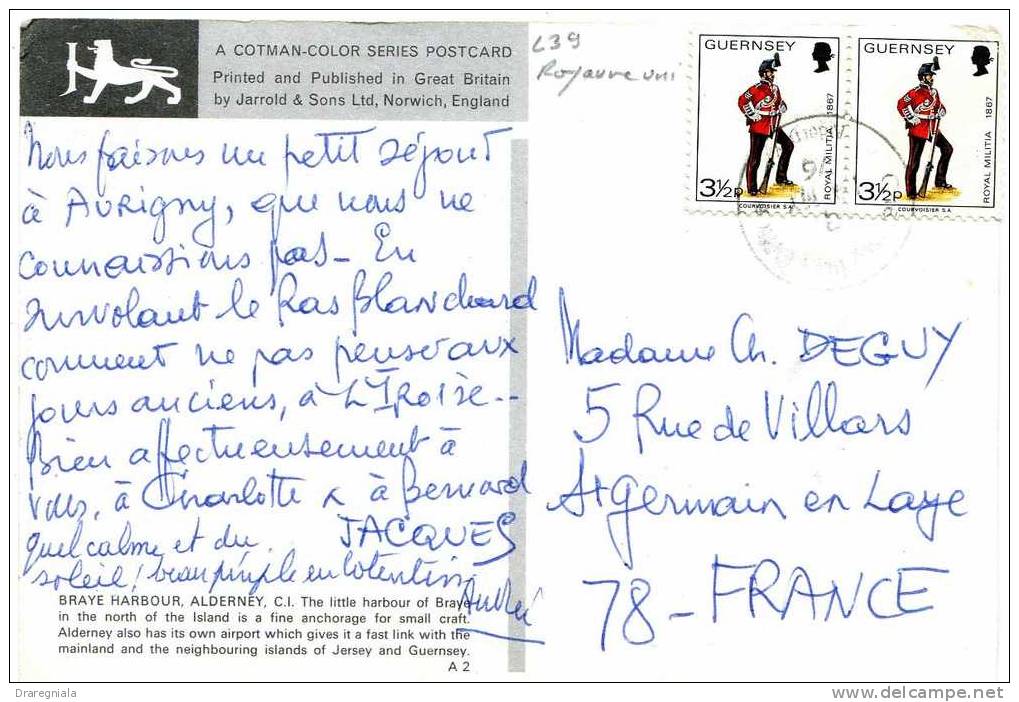 A COTMAN-COLOR SERIES POSTCARD
Printed and Published in Great Britain
by Jarrold & Sons Ltd, Norwich, England
L39
Royaume uni
GUERNSEY
ROYAL MILITIA 1867
3½P
COURVOISIER S.A.
GUERNSEY
ROYAL MILITIA 1867
3½P
COURVOISIER S.A.
Nous faisons un petit séjour
à AURIGNY, que nous ne
connaissions pas - En
survolant le Ras Blanchard
comment ne pas penser aux
jours anciens, à L'IROISE--
Bien affectueusement à
vous, à Charlotte & à Bernard
JACQUES
quel calme et du
soleil! beau périple en Cotentin
Andrée
Madame Ch. DEGUY
5 Rue de Villars
St Germain en Laye
78 - FRANCE
BRAYE HARBOUR, ALDERNEY, C.I. The little harbour of Braye
in the north of the Island is a fine anchorage for small craft.
Alderney also has its own airport which gives it a fast link with the
mainland and the neighbouring islands of Jersey and Guernsey.
A 2
Draregniala
www.delcampe.net